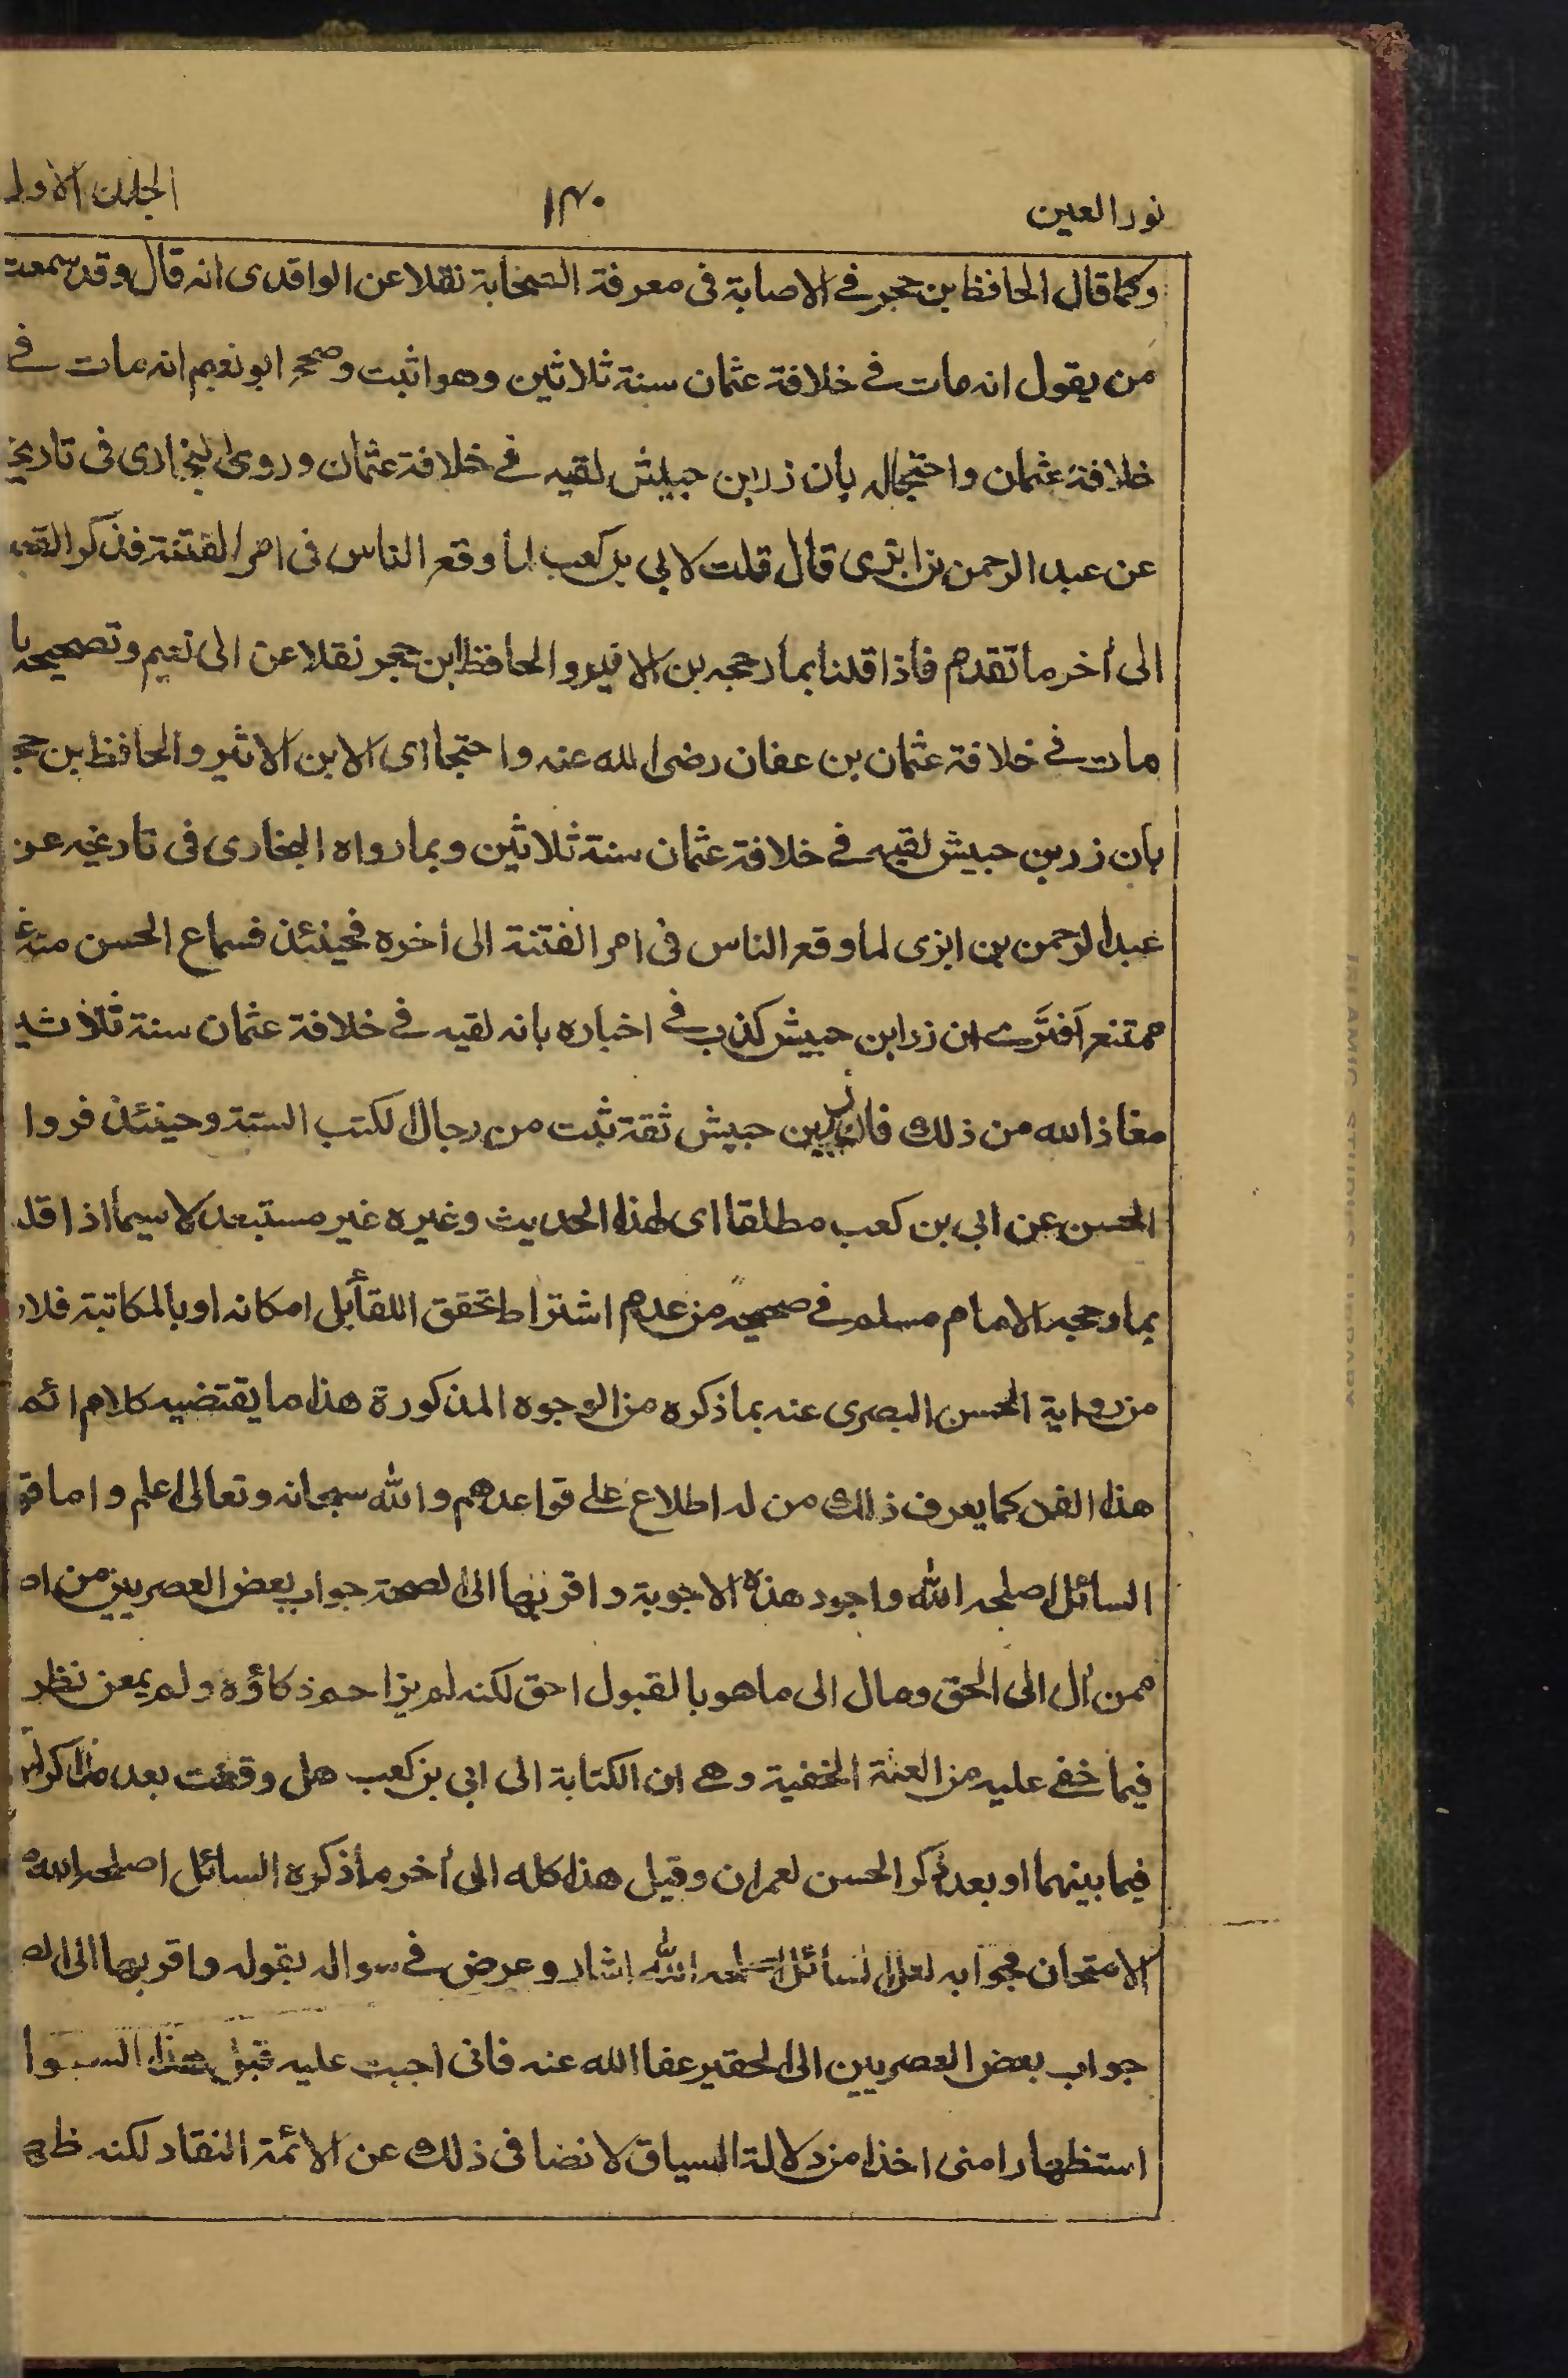 نور العين
١٣٠
الجلد الاول
وكما قال الحافظ بن حجر في الاصابة فى معرفة الصحابة نقلا عن الواقدى انه قال وقد سمعت
من يقول انه مات في خلافة عثمان سنة ثلاثين وهو اثبت وصححه ابو نعيم انه مات في
خلافة عثمان واحتج له بان زر ابن حبيش لقيه في خلافة عثمان وروى البخارى فى تاريخ
عن عبد الرحمن بن ابزى قال قلت لابي بن كعب لما وقع الناس فى امر الفتنة فذكر القص
الى أخر ما تقدم فاذا قلنا بما رجحه بن الاثير والحافظ ابن حجر نقلا عن ابى نعيم وتصحيحه با
مات في خلافة عثمان بن عفان رضى الله عنه واحتجا اى الابن الاثير والحافظ بن حج
بان زر بن حبيش لقيه في خلافة عثمان سنة ثلاثين وبما رواه البخارى فى تاريخه عن
عبد الرحمن بن ابزى لما وقع الناس فى امر الفتنة الى اخره فحينئذ فسماع الحسن منه غ
ممتنع أفترى ان زر ابن حبيش كذب في اخباره بانه لقيه في خلافة عثمان سنة ثلاثين
معاذ الله من ذلك فان زر بن حبيش ثقة ثبت من رجال الكتب الستة وحينئذ فروا
الحسن عن ابي بن كعب مطلقا اى لهذا الحديث وغيره غير مستبعد لا سيما اذا قلـ
بما رجحه الامام مسلم في صحيحه من عدم اشتراط تحقق اللقاء بل امكانه او بالمكاتبة فلا
من رواية الحسن البصرى عنه بما ذكره من الوجوه المذكورة هذا ما يقتضيه كلام ائمـ
هذا الفن كما يعرف ذلك من له اطلاع على قواعدهم والله سبحانه وتعالى اعلم واما قو
السائل اصلحه الله واجود هذه الاجوبة واقربها الى الصحة جواب بعض العصريين من اه
ممن أل الى الحق ومال الى ما هو بالقبول احق لكنه لم يزاحم ذكاؤه ولم يمعن نظر
فيما خفي عليه من العثة الخفية وهي ان الكتابة الى ابى بن كعب هل وقعت بعد مذاكرتـ
فيما بينهما او بعد ذكر الحسن لعمران وقيل هذا كله الى أخر ما ذكره السائل اصلحه الله
الامتحان فجوابه لعل السائل اصلحه الله اشار وعرض في سواله بقوله واقربها الى الصـ
جواب بعض العصريين الى الحقير عفا الله عنه فانى اجبت عليه قبل هذا السوا
استظهارا منى اخذا من دلالة السياق لا نصا فى ذلك عن الائمة النقاد لكنه ظه